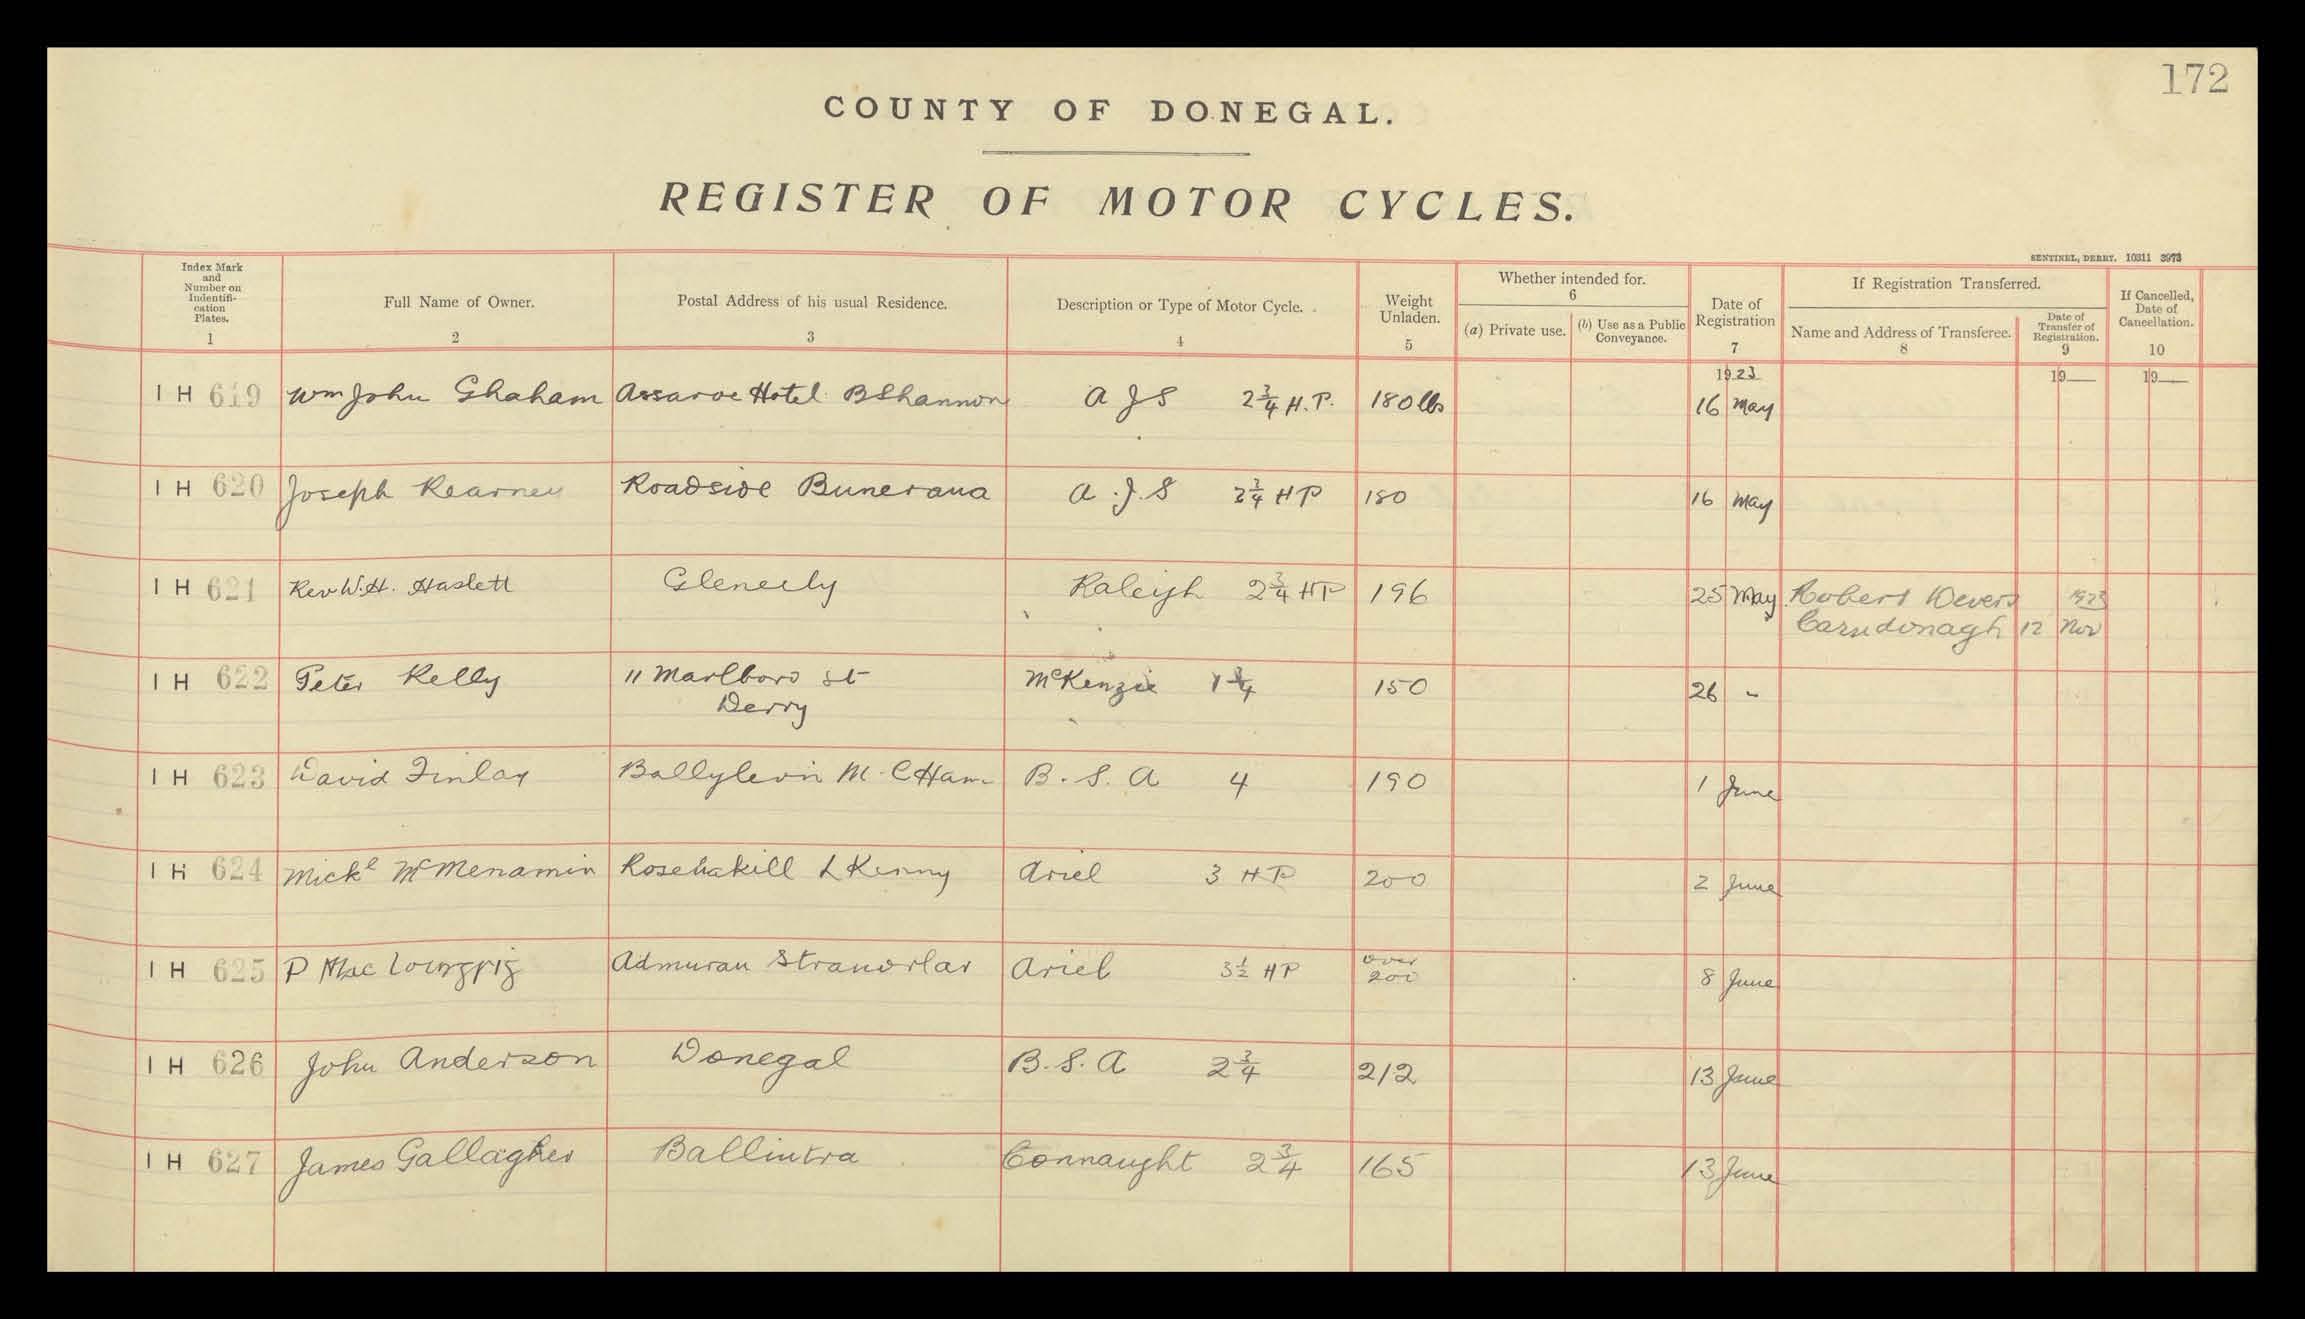 172
COUNTY OF DONEGAL.
REGISTER OF MOTOR CYCLES.
SENTINEL, DERRY. 10311 3973
Index Mark and Number on Indentifi- cation Plates. 1
Full Name of Owner. 2
Postal Address of his usual Residence. 3
Description or Type of Motor Cycle. 4
Weight Unladen. 5
Whether intended for. 6
(a) Private use.
(b) Use as a Public Conveyance.
Date of Registration 7
If Registration Transferred.
Name and Address of Transferee. 8
Date of Transfer of Registration. 9
If Cancelled, Date of Cancellation. 10
1923 19 19
IH 619 Wm John Ghaham Assaroe Hotel BShannon A J S 2 3/4 H.P. 180 lbs 16 May
IH 620 Joseph Kearney Roadside Buncrana A.J.S 2 3/4 HP 180 16 May
IH 621 Rev W.H. Haslett Gleneely Raleigh 2 3/4 HP 196 25 May Robert Devers 1923
Carndonagh 12 Nov
IH 622 Peter Kelly 11 Marlboro St McKenzie 1 3/4 150 26 "
Derry
IH 623 David Finlay Ballylevin M.CHam B.S.A 4 190 1 June
IH 624 Mickl McMenamin Rosehakill LKenny Ariel 3 HP 200 2 June
IH 625 P Mac Admuran Stranorlar Ariel 3 1/2 HP over 200 8 June
IH 626 John Anderson Donegal B.S.A 2 3/4 212 13 June
IH 627 James Gallagher Ballintra Connaught 2 3/4 165 13 June